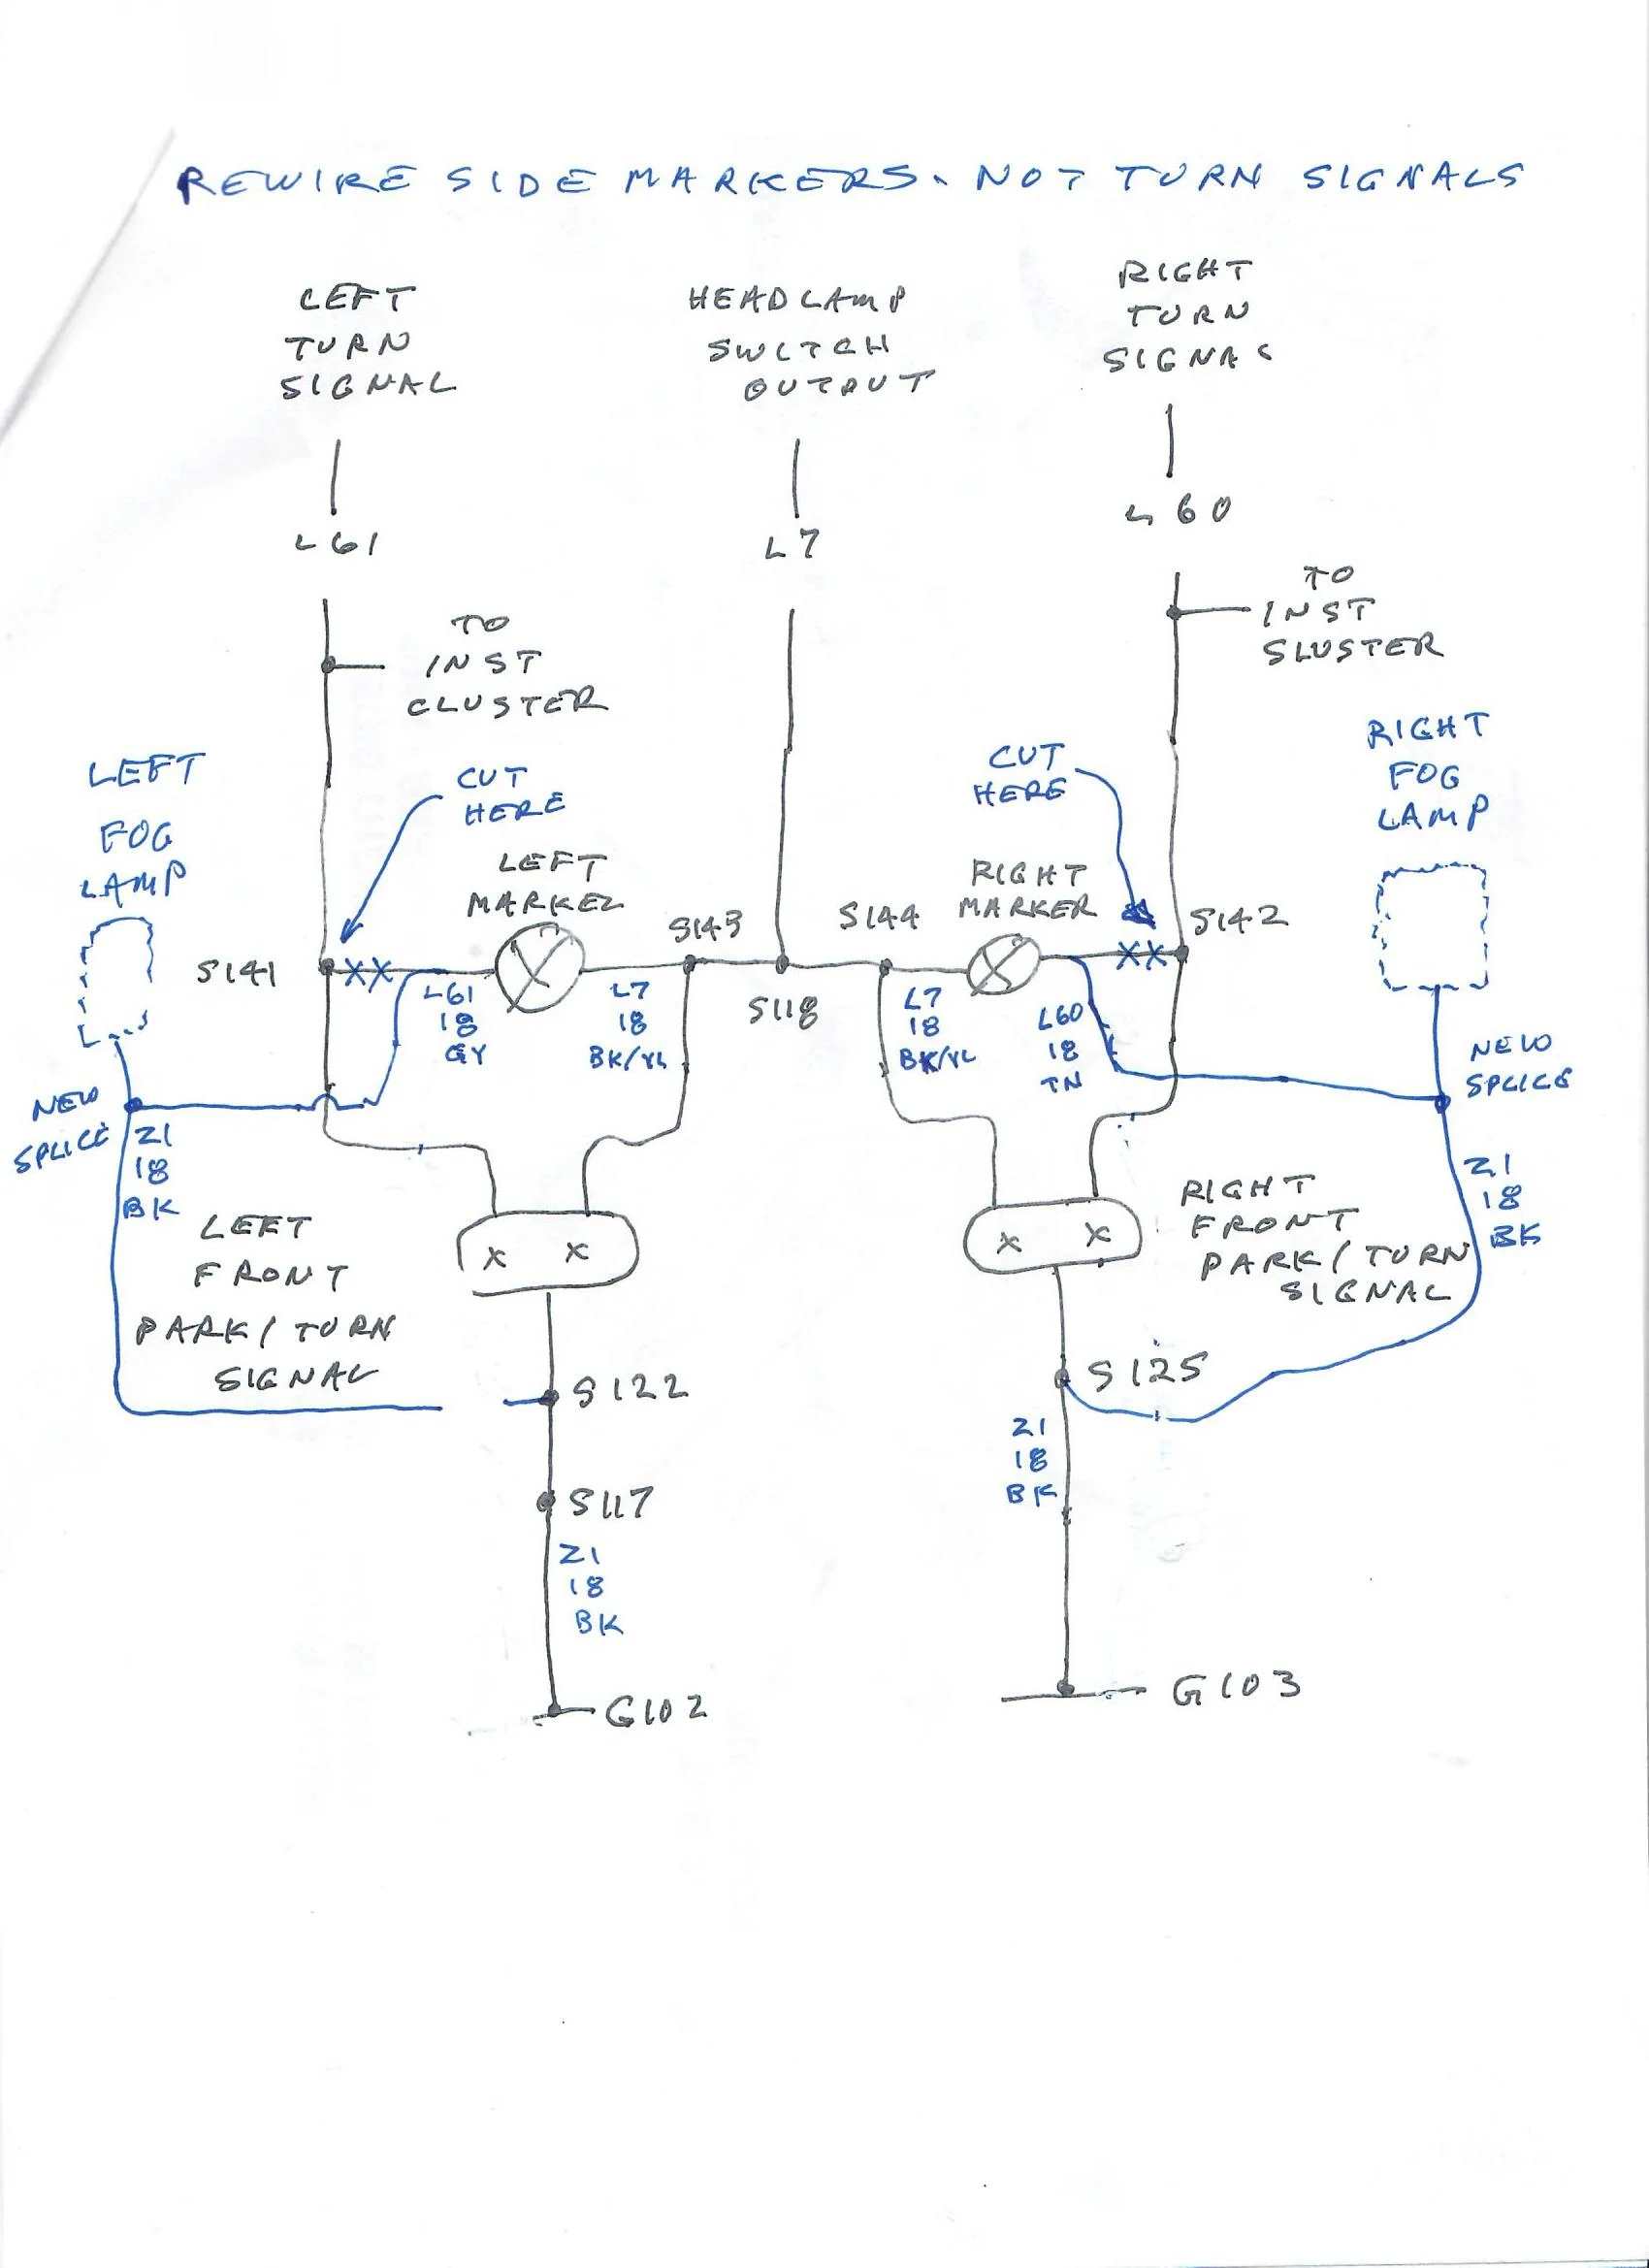 REWIRE SIDE MARKERS. NOT TURN SIGNALS
LEFT
TURN
SIGNAL
HEADLAMP
SWITCH
OUTPUT
RIGHT
TURN
SIGNAL
L61
L7
L60
TO
INST
CLUSTER
TO
INST
SLUSTER
LEFT
FOG
LAMP
CUT
HERE
LEFT
MARKER
CUT
HERE
RIGHT
MARKER
RIGHT
FOG
LAMP
S141
S143
S118
S144
S142
L61
18
GY
L7
18
BK/YL
L7
18
BK/YL
L60
18
TN
NEW
SPLICE
NEW
SPLICE
Z1
18
BK
Z1
18
BK
LEFT
FRONT
PARK/TURN
SIGNAL
X X
X X
RIGHT
FRONT
PARK/TURN
SIGNAL
S122
S117
S125
Z1
18
BK
Z1
18
BK
G102
G103